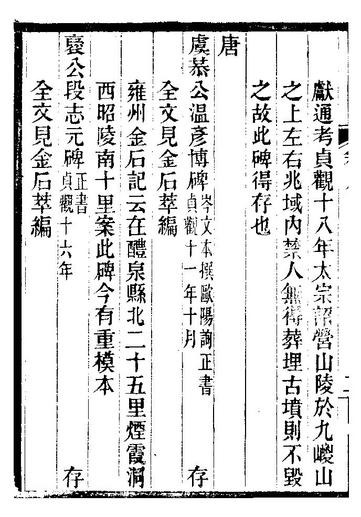 獻通考貞觀十八年太宗詔營山陵於九嵕山
之上左右兆域內禁人無得葬埋古墳則不毀
之故此碑得存也
唐
虞恭公温彥博碑 岑文本撰歐陽詢正書 貞觀十一年十月 存
全文見金石萃編
雍州金石記云在醴泉縣北二十五里煙霞洞
西昭陵南十里案此碑今有重模本
襃公段志元碑 正書 貞觀十六年 存
全文見金石萃編